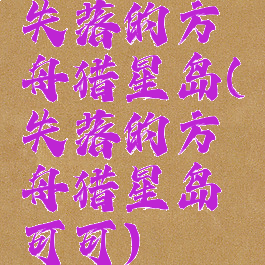 失落的方
舟猎星岛(
失落的方
舟猎星岛
可可)